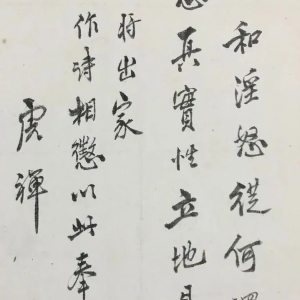 和淫怒從何
真實性立地
將出家
作詩相懲以此奉
虎禪